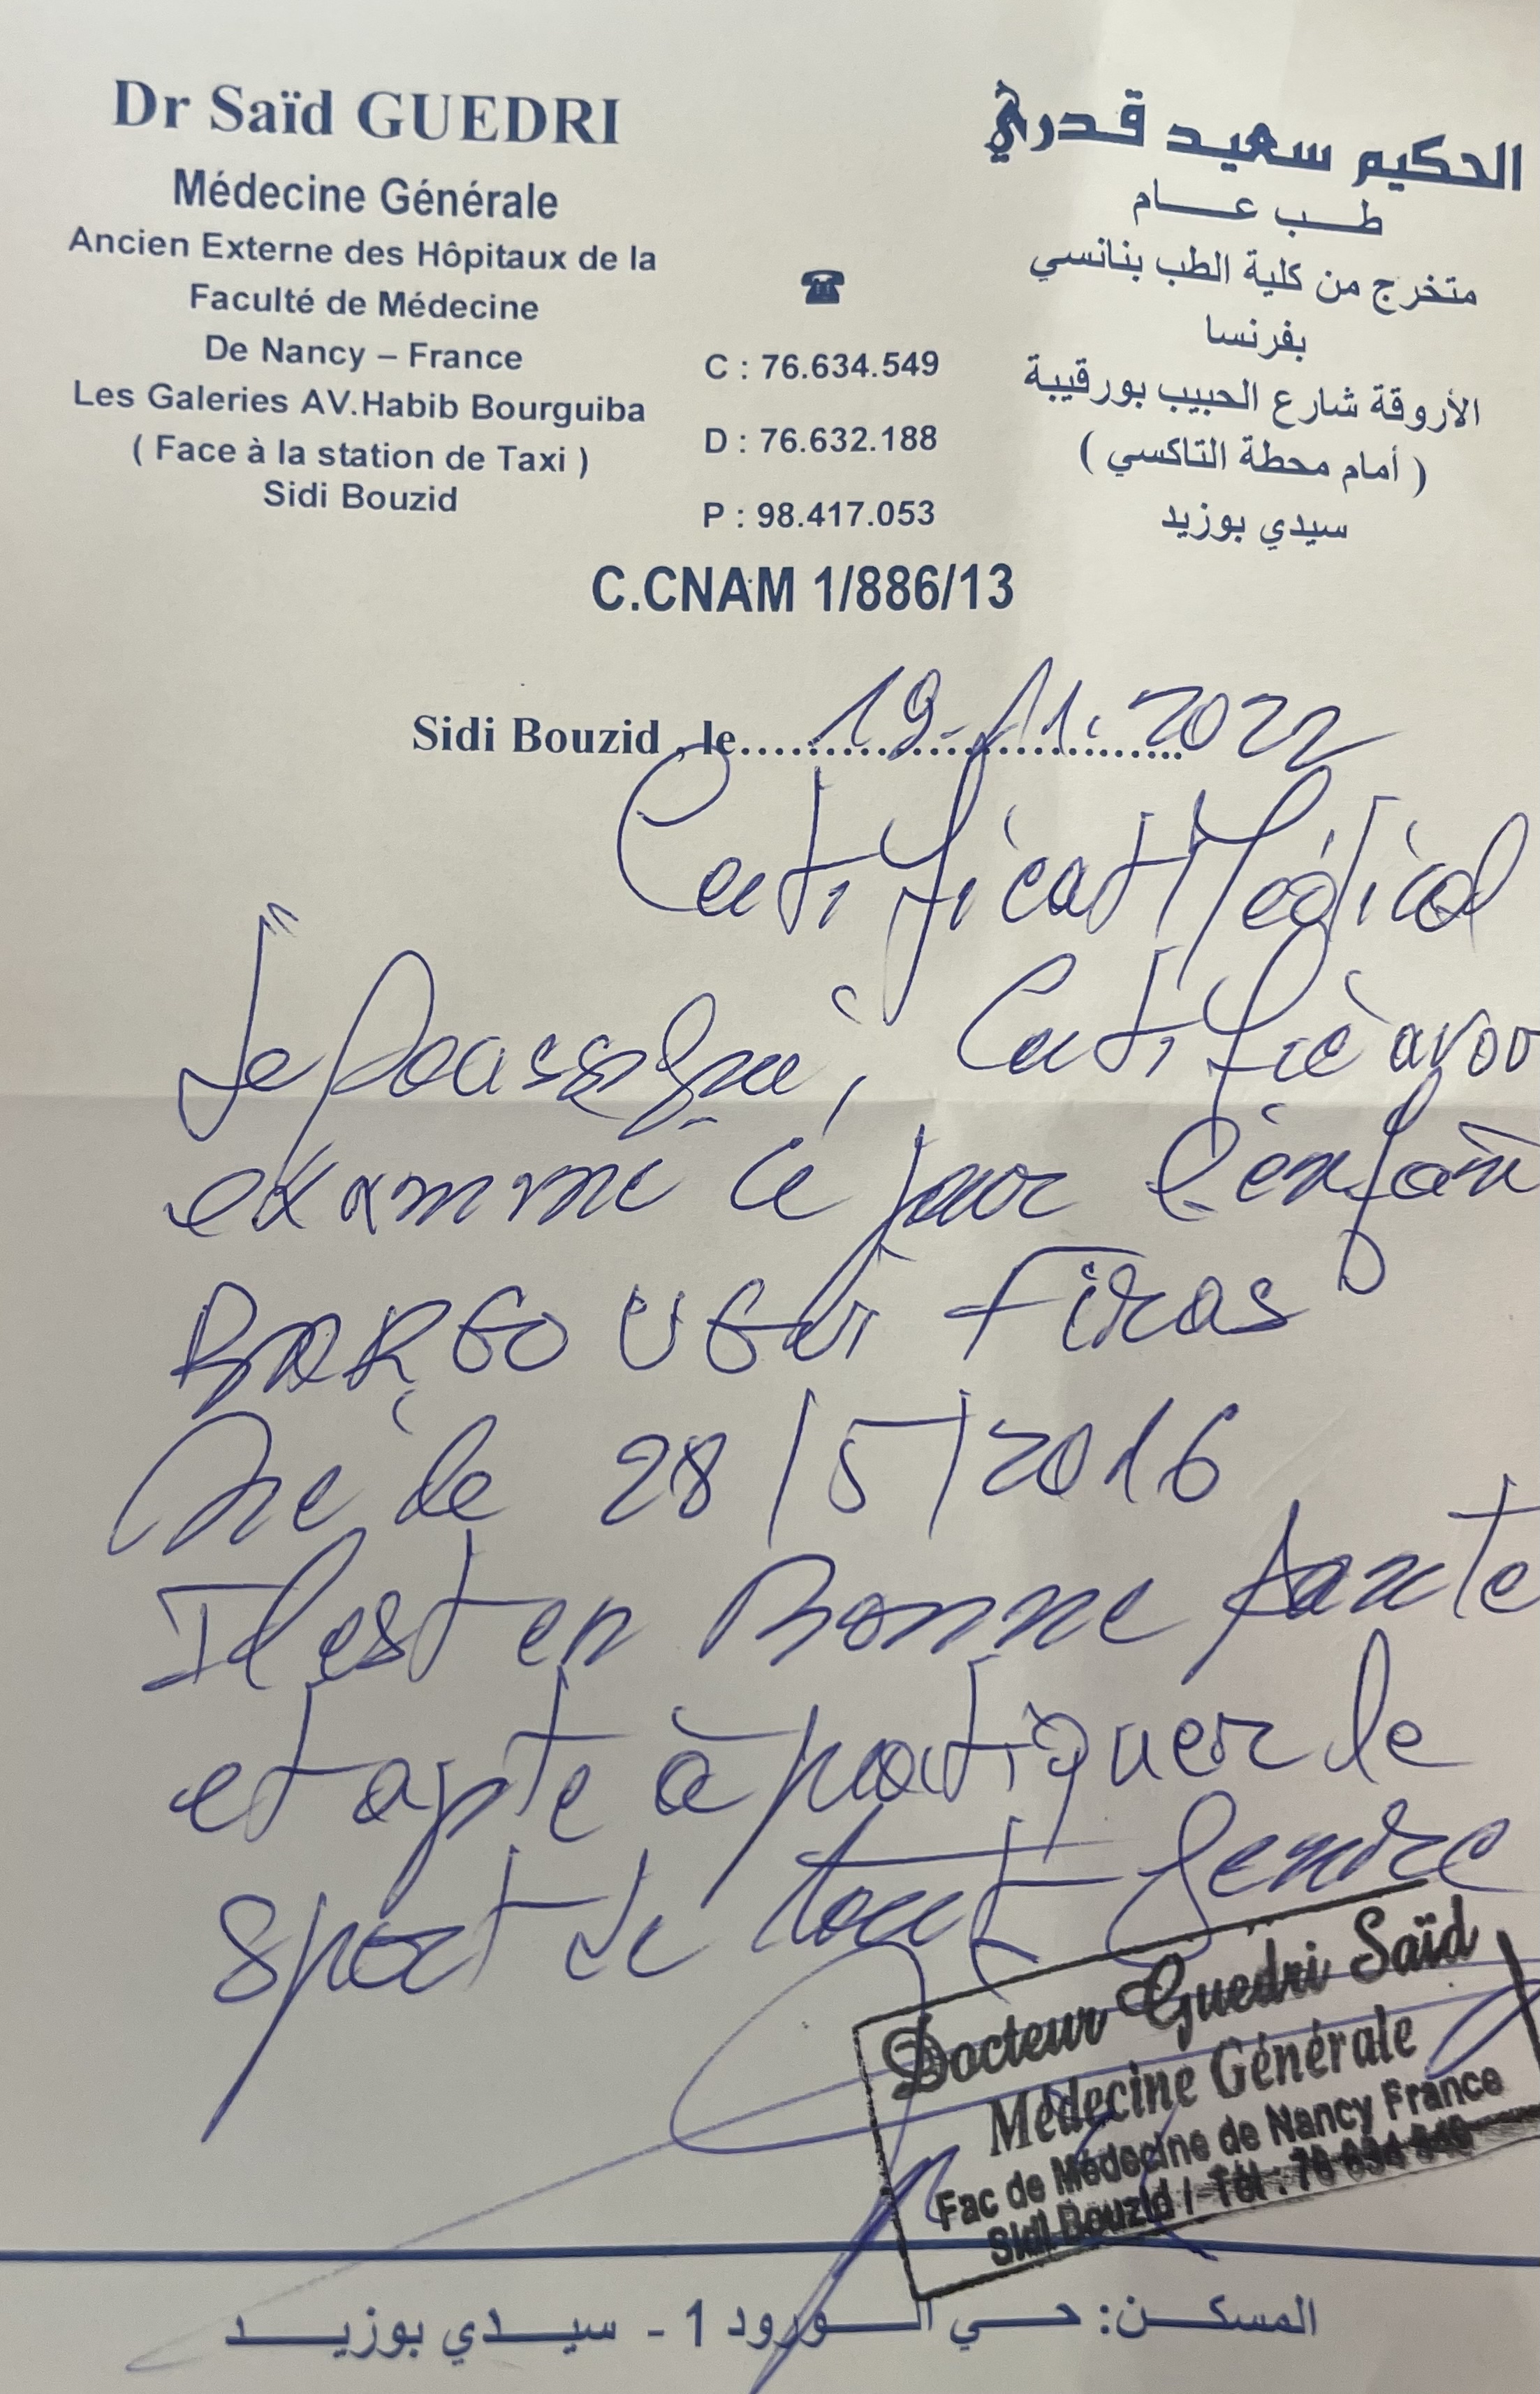 Dr Saïd GUEDRI
Médecine Générale
Ancien Externe des Hôpitaux de la
Faculté de Médecine
De Nancy – France
Les Galeries AV.Habib Bourguiba
( Face à la station de Taxi )
Sidi Bouzid
☎
C : 76.634.549
D : 76.632.188
P : 98.417.053
الحكيم سعيد قدري
طب عام
متخرج من كلية الطب بنانسي
بفرنسا
الأروقة شارع الحبيب بورقيبة
( أمام محطة التاكسي )
سيدي بوزيد
C.CNAM 1/886/13
Sidi Bouzid , le 19-11-2022
Certificat Médical
Je soussigné, Certifie avoir
examiné ce jour l'enfant
BARGOUGUI Firas
Né le 28/5/2016
Il est en Bonne santé
et apte à pratiquer le
sport de tout genre
Docteur Guedri Saïd
Médecine Générale
Fac de Médecine de Nancy France
Sidi Bouzid / Tél : 76 634 549
المسكن: حي الورود 1 - سيدي بوزيد